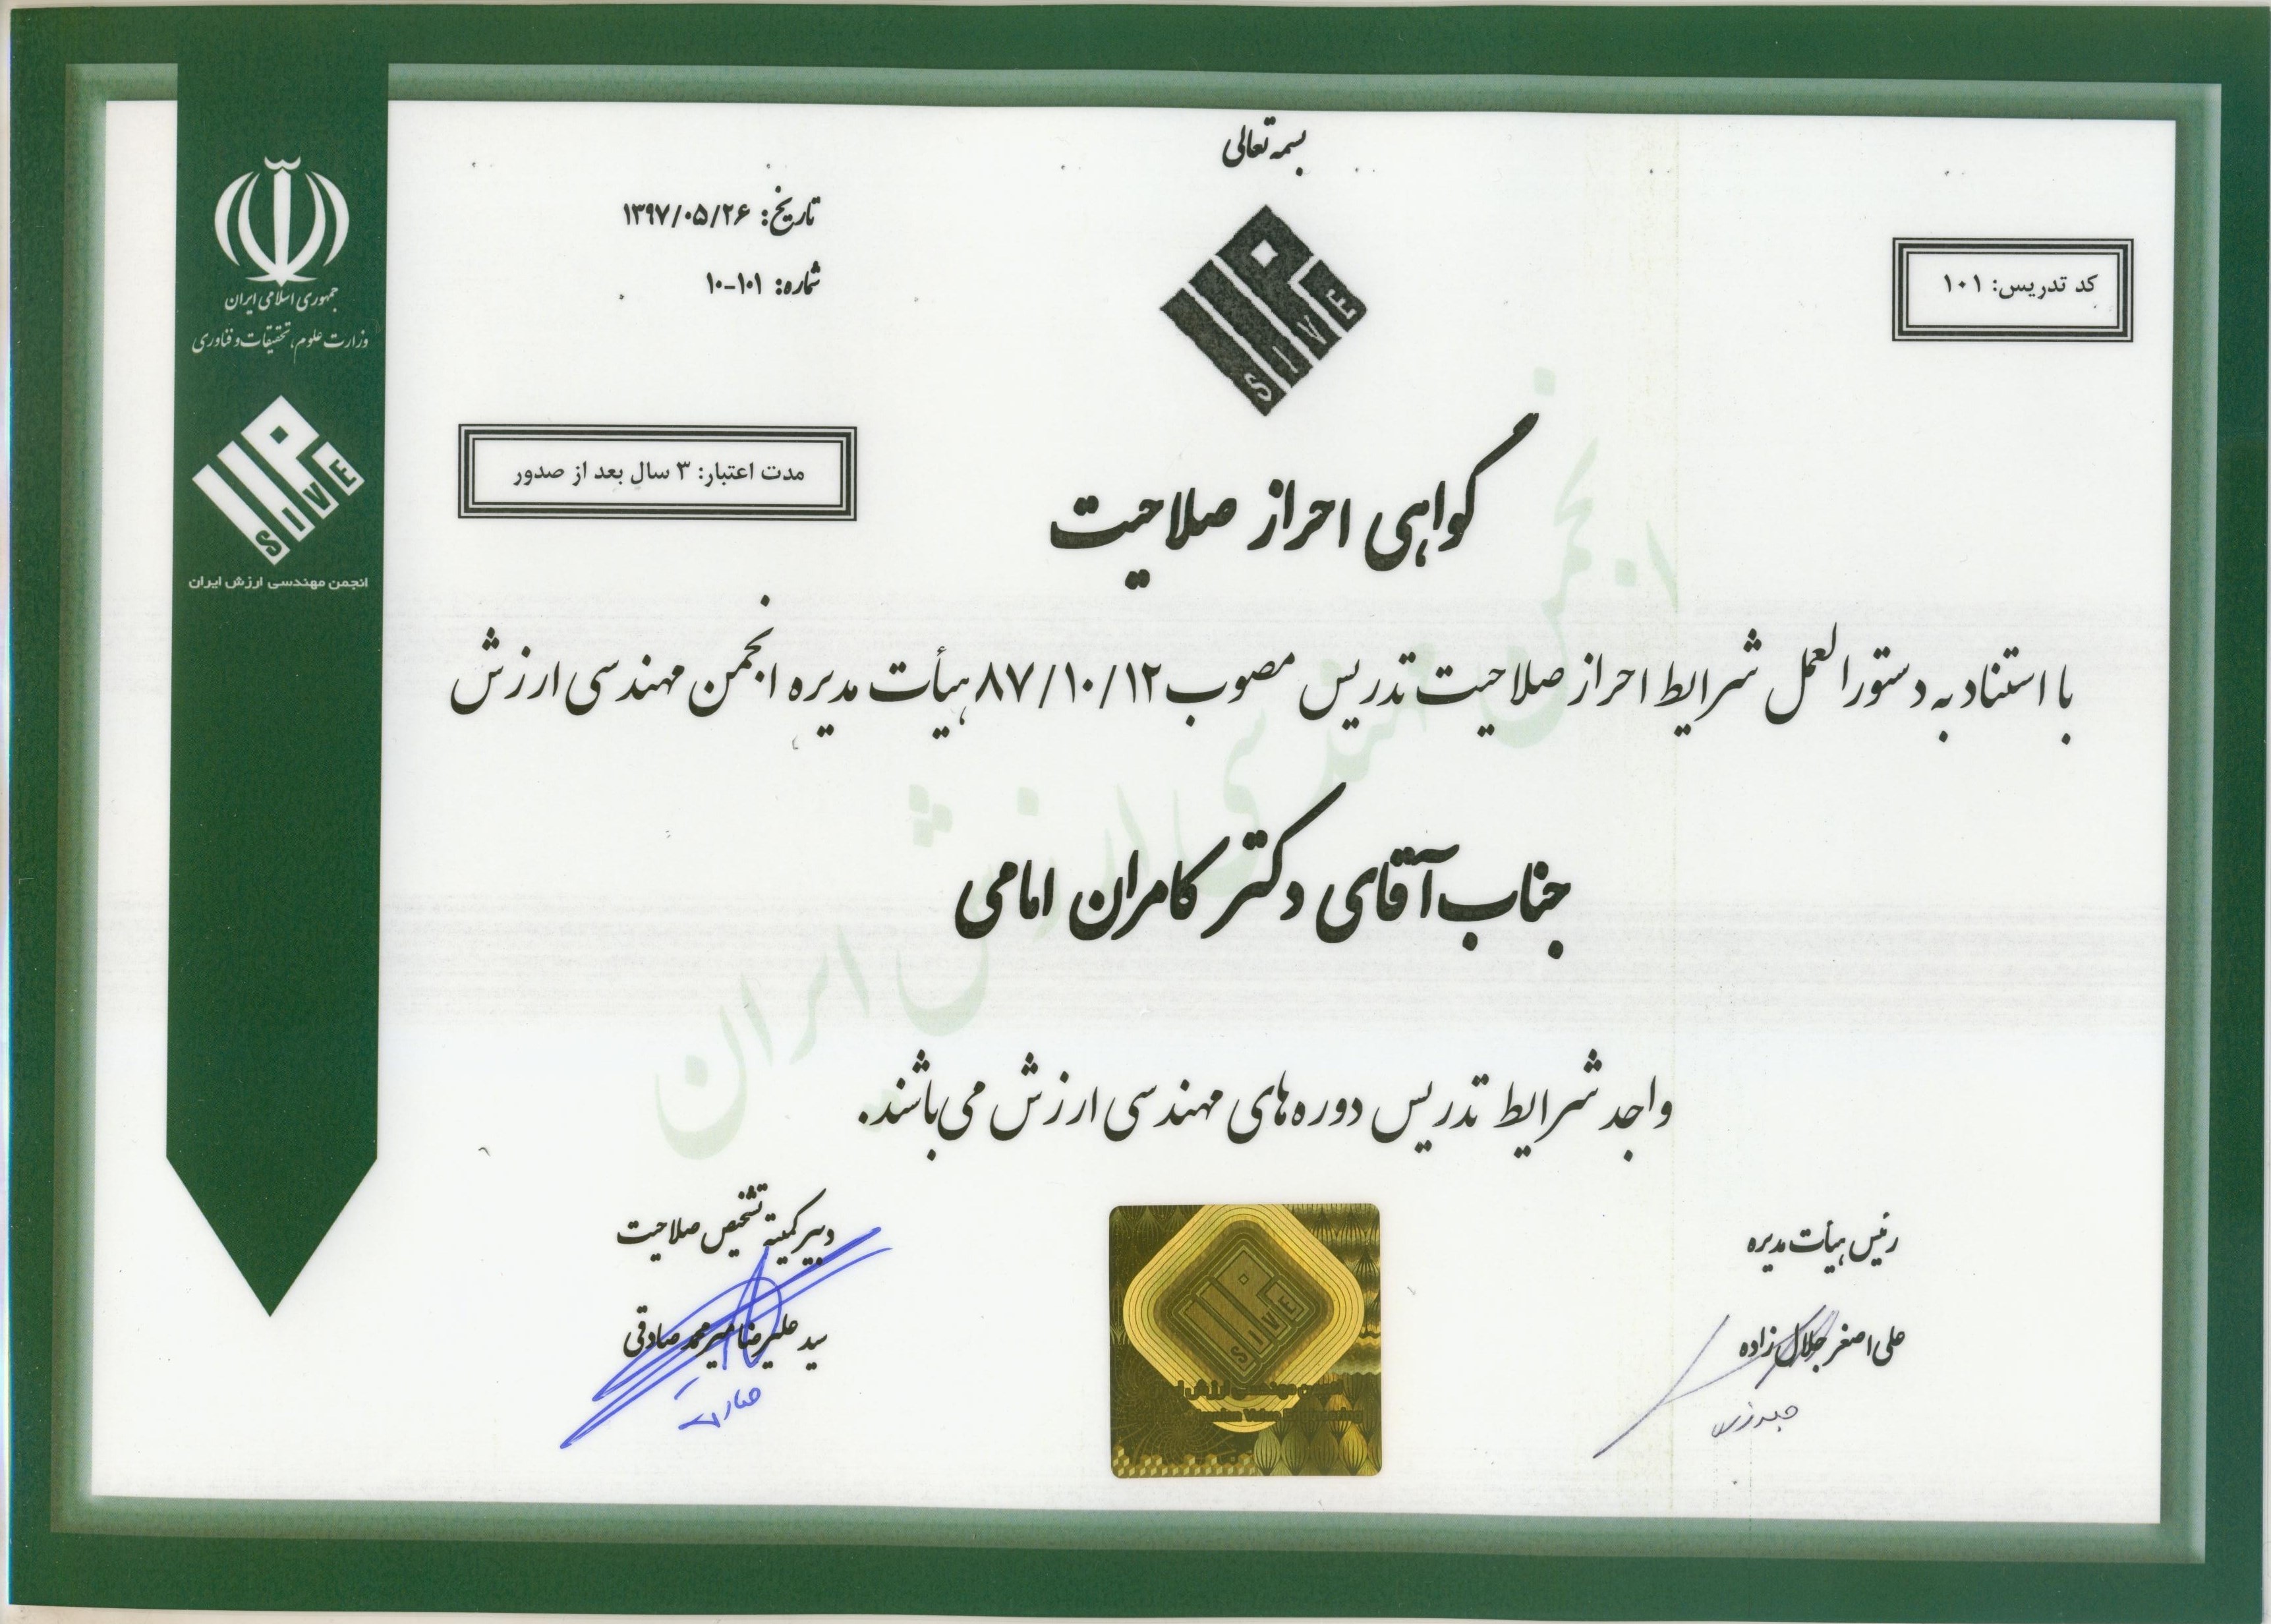 بسمه تعالی
تاریخ: ۱۳۹۷/۰۵/۲۶
شماره: ۱۰۱-۱۰
کد تدریس: ۱۰۱
جمهوری اسلامی ایران
وزارت علوم، تحقیقات و فناوری
SIVE
SIVE
انجمن مهندسی ارزش ایران
مدت اعتبار: ۳ سال بعد از صدور
گواهی احراز صلاحیت
با استناد به دستورالعمل شرایط احراز صلاحیت تدریس مصوب ۸۷/۱۰/۱۲ هیأت مدیره انجمن مهندسی ارزش
جناب آقای دکتر کامران امامی
واجد شرایط تدریس دوره‌های مهندسی ارزش می‌باشند.
انجمن مهندسی ارزش ایران
رئیس هیأت مدیره
علی اصغر جلال زاده
دبیر کمیته تشخیص صلاحیت
سید علیرضا میرمحمد صادقی
SIVE